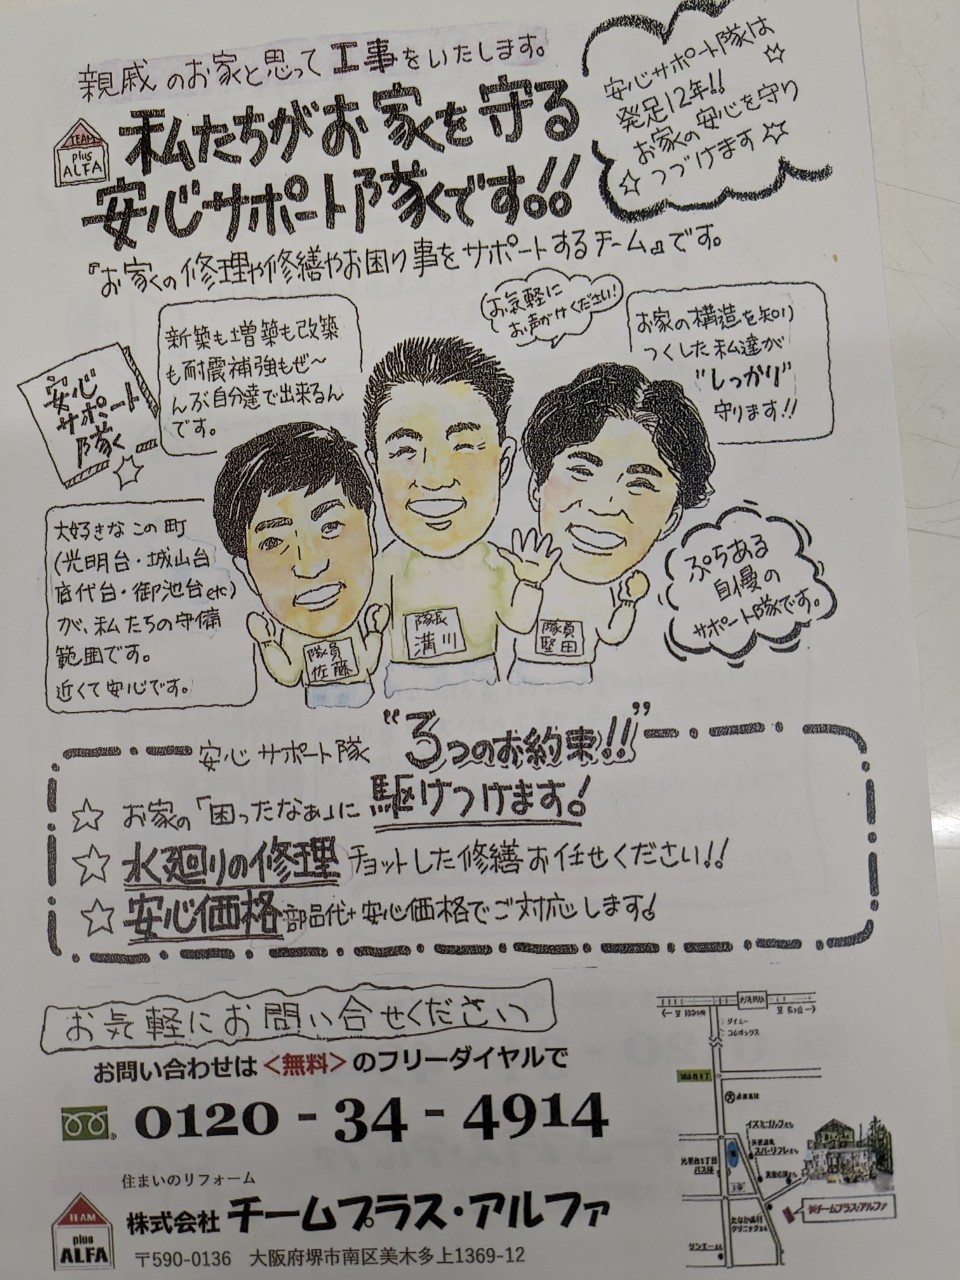 親戚のお家と思って工事をいたします。
安心サポート隊は
発足12年!!
お家の安心を守り
つづけます
TEAM
plus
ALFA
私たちがお家を守る
安心サポート隊です!!
『お家の修理や修繕やお困り事をサポートするチーム』です。
新築も増築も改築
も耐震補強もぜ〜
んぶ自分達で出来るん
です。
お気軽に
お声がけください!
お家の構造を知り
つくした私達が
"しっかり"
守ります!!
安心
サポート
隊
大好きなこの町
(光明台・城山台
庭代台・御池台etc)
が、私たちの守備
範囲です。
近くて安心です。
隊員
佐藤
隊長
溝川
隊員
堅田
ぷらある
自慢の
サポート隊です。
安心サポート隊 "3つのお約束!!"
☆ お家の「困ったなぁ」に駆けつけます!
☆ 水廻りの修理 チョットした修繕お任せください!!
☆ 安心価格 部品代+安心価格でご対応します!
お気軽にお問い合せください
お問い合わせは<無料>のフリーダイヤルで
0120-34-4914
住まいのリフォーム
TEAM
plus
ALFA
株式会社 チームプラス・アルファ
〒590-0136 大阪府堺市南区美木多上1369-12
ダイエー
コムボックス
㈱チームプラス・アルファ